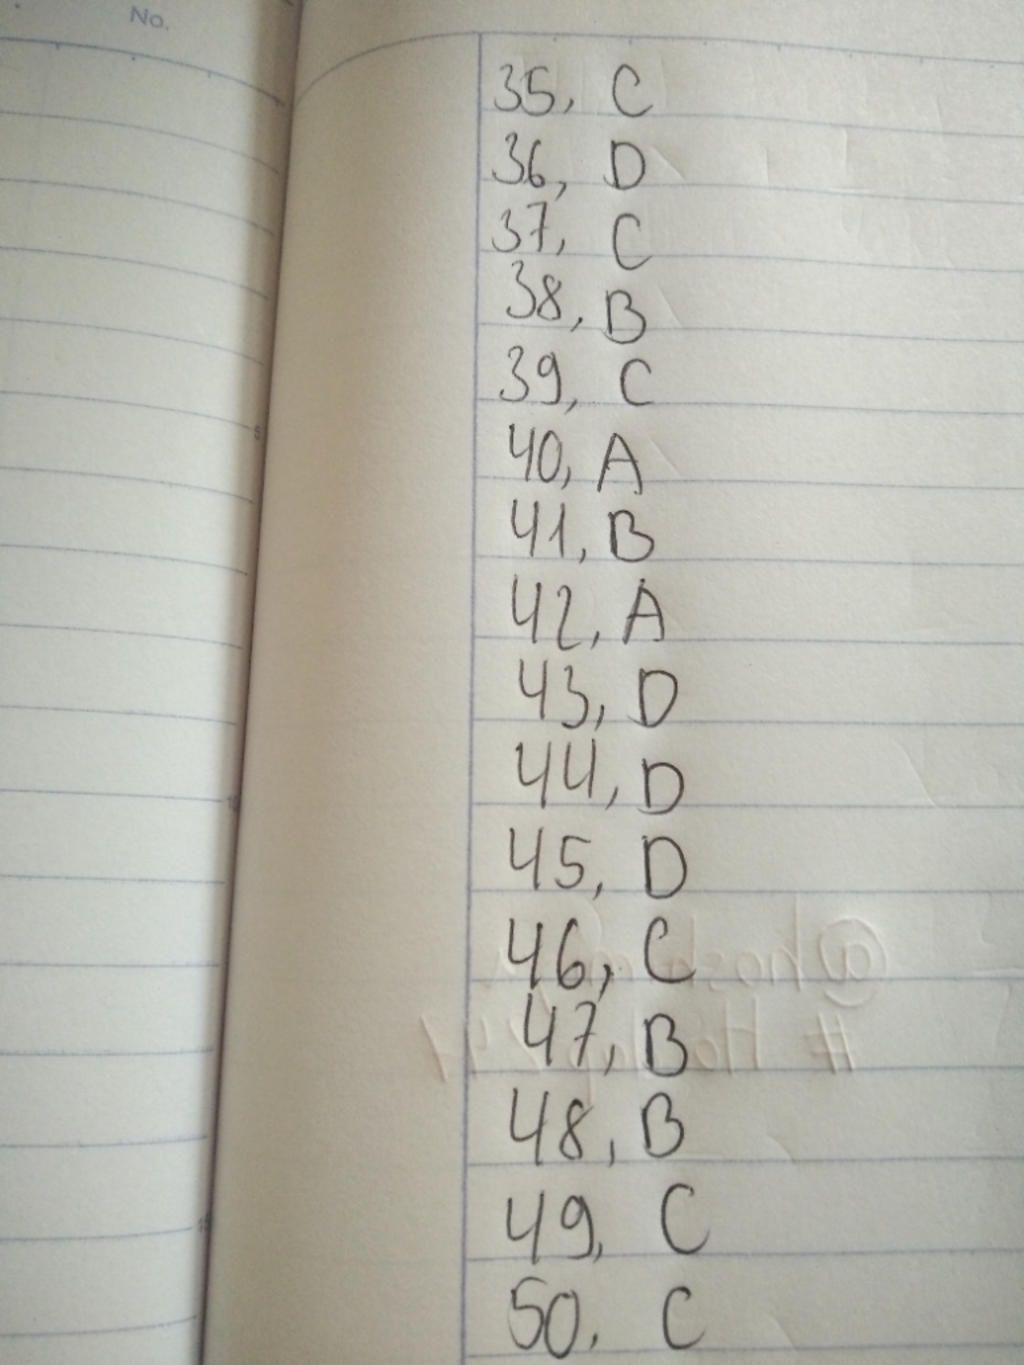 No.
35, C
36, D
37, C
38, B
39, C
40, A
41, B
42, A
43, D
44, D
45, D
46, C
47, B
48, B
49, C
50, C